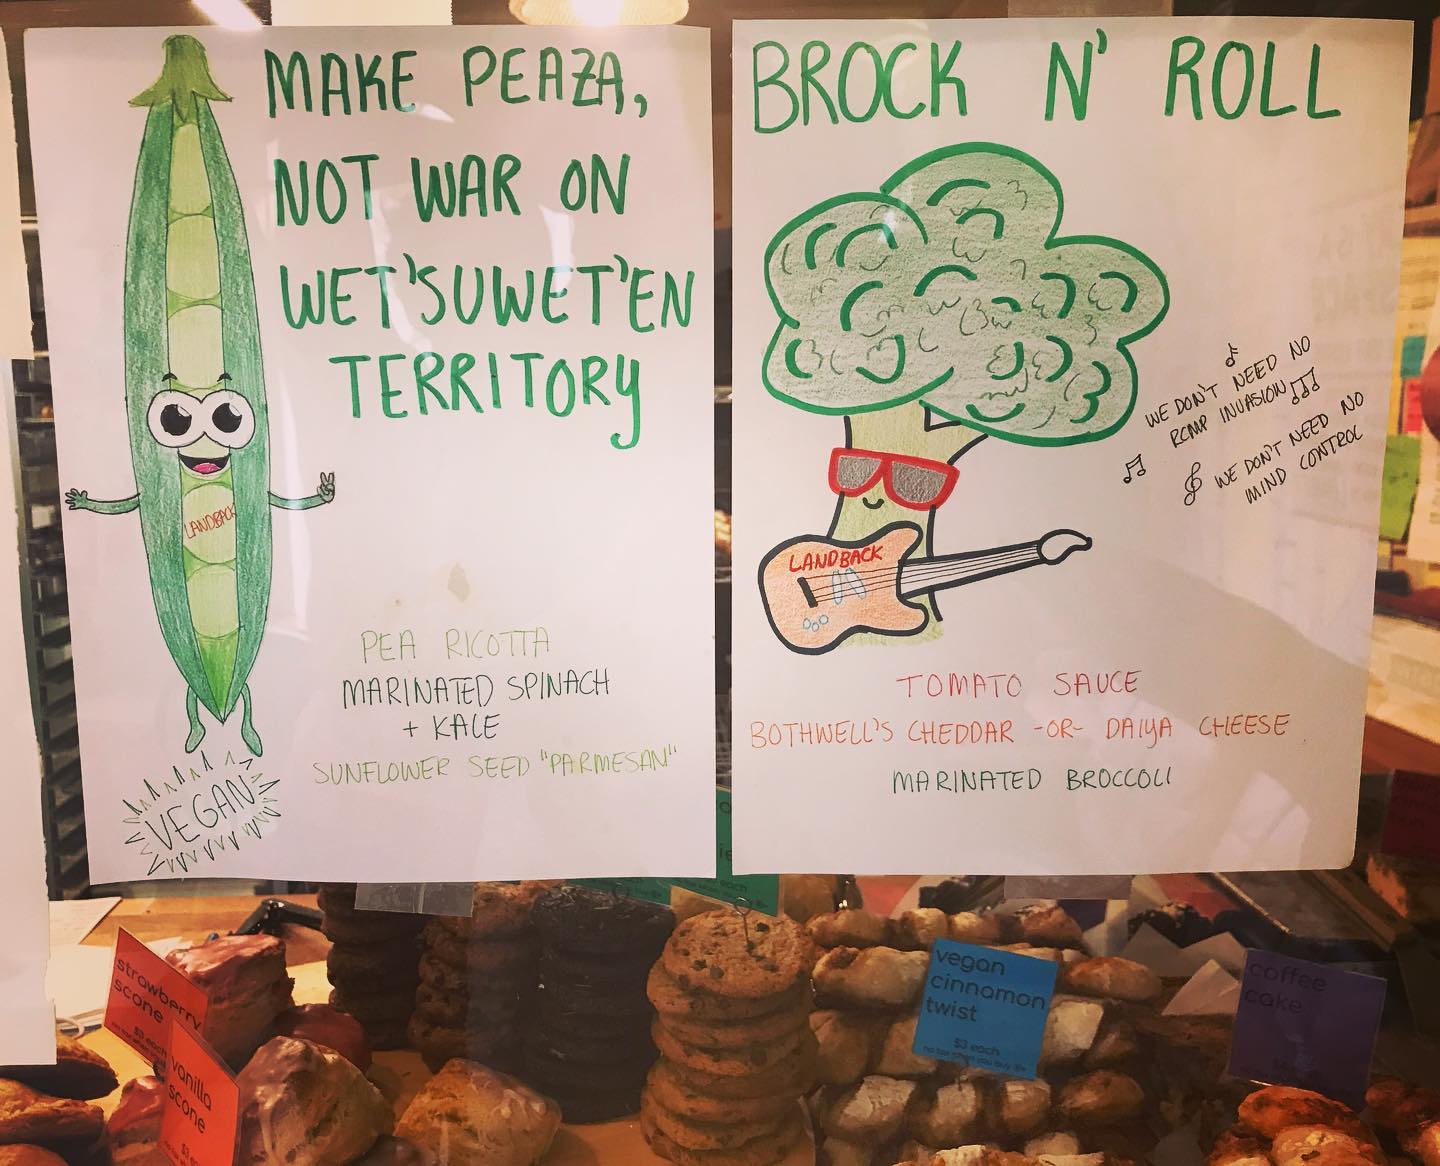 MAKE PEAZA,
NOT WAR ON
WET'SUWET'EN
TERRITORY
LANDBACK
PEA RICOTTA
MARINATED SPINACH
+ KALE
SUNFLOWER SEED "PARMESAN"
VEGAN
BROCK N' ROLL
WE DON'T NEED NO
RCMP INVASION
WE DON'T NEED NO
MIND CONTROL
LANDBACK
TOMATO SAUCE
BOTHWELL'S CHEDDAR -OR- DAIYA CHEESE
MARINATED BROCCOLI
strawberry
scone
$3 each
vanilla
scone
vegan
cinnamon
twist
$3 each
no tax when you buy 6+
coffee
cake
each